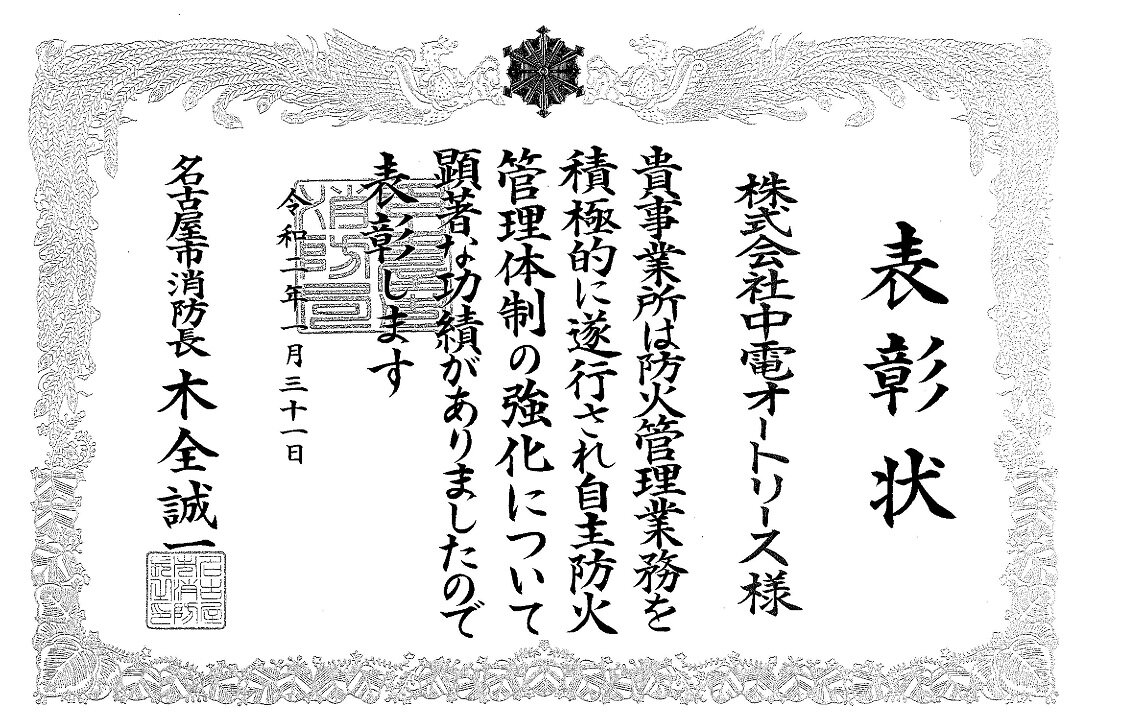 表彰状
株式会社中電オートリース様
貴事業所は防火管理業務を
積極的に遂行され自主防火
管理体制の強化について
顕著な功績がありましたので
表彰します
令和二年一月三十一日
名古屋市消防長 木全誠一